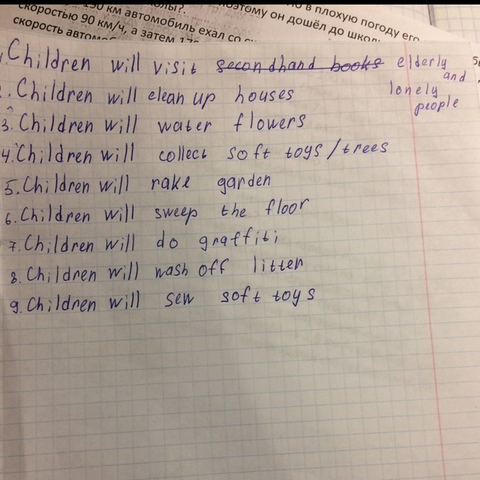 130 км автомобиль ехал со
в плохую погоду его
скоростью 90 км/ч, а затем
поэтому он дошёл до школ
скорость автомо
1. Children will visit secondhand books elderly and lonely people
2. Children will clean up houses
3. Children will water flowers
4. Children will collect soft toys/trees
5. Children will rake garden
6. Children will sweep the floor
7. Children will do graffiti
8. Children will wash off litter
9. Children will sew soft toys